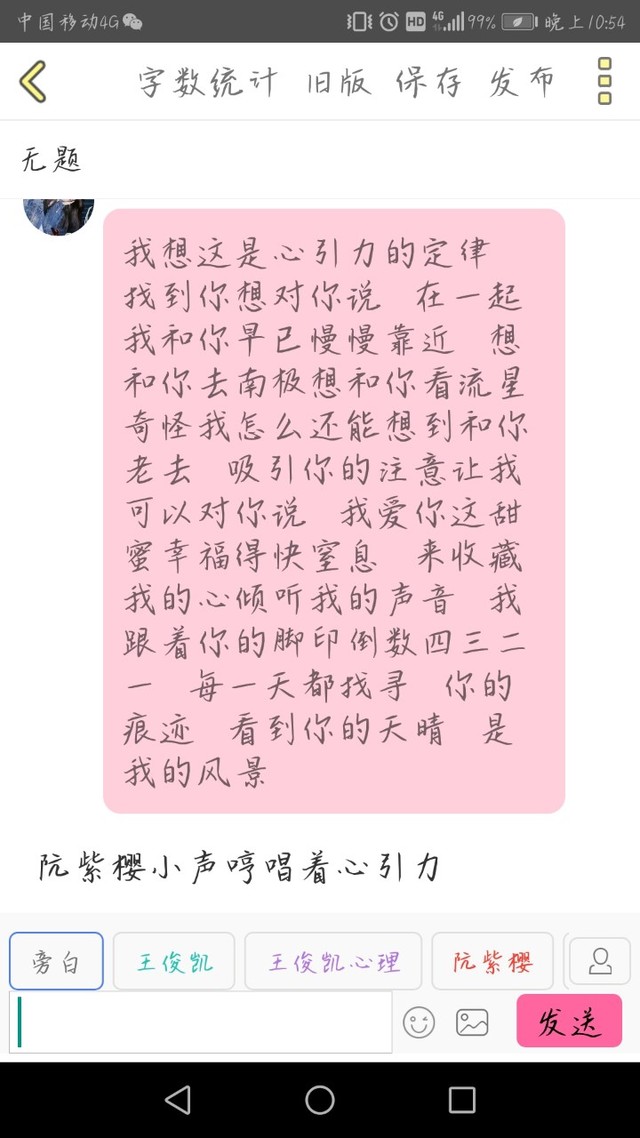 中国移动4G HD 4G 99% 晚上10:54
字数统计 旧版 保存 发布
无题
我想这是心引力的定律
找到你想对你说 在一起
我和你早已慢慢靠近 想
和你去南极想和你看流星
奇怪我怎么还能想到和你
老去 吸引你的注意让我
可以对你说 我爱你这甜
蜜幸福得快窒息 来收藏
我的心倾听我的声音 我
跟着你的脚印倒数四三二
一 每一天都找寻 你的
痕迹 看到你的天晴 是
我的风景
阮紫樱小声哼唱着心引力
旁白 王俊凯 王俊凯心理 阮紫樱
发送